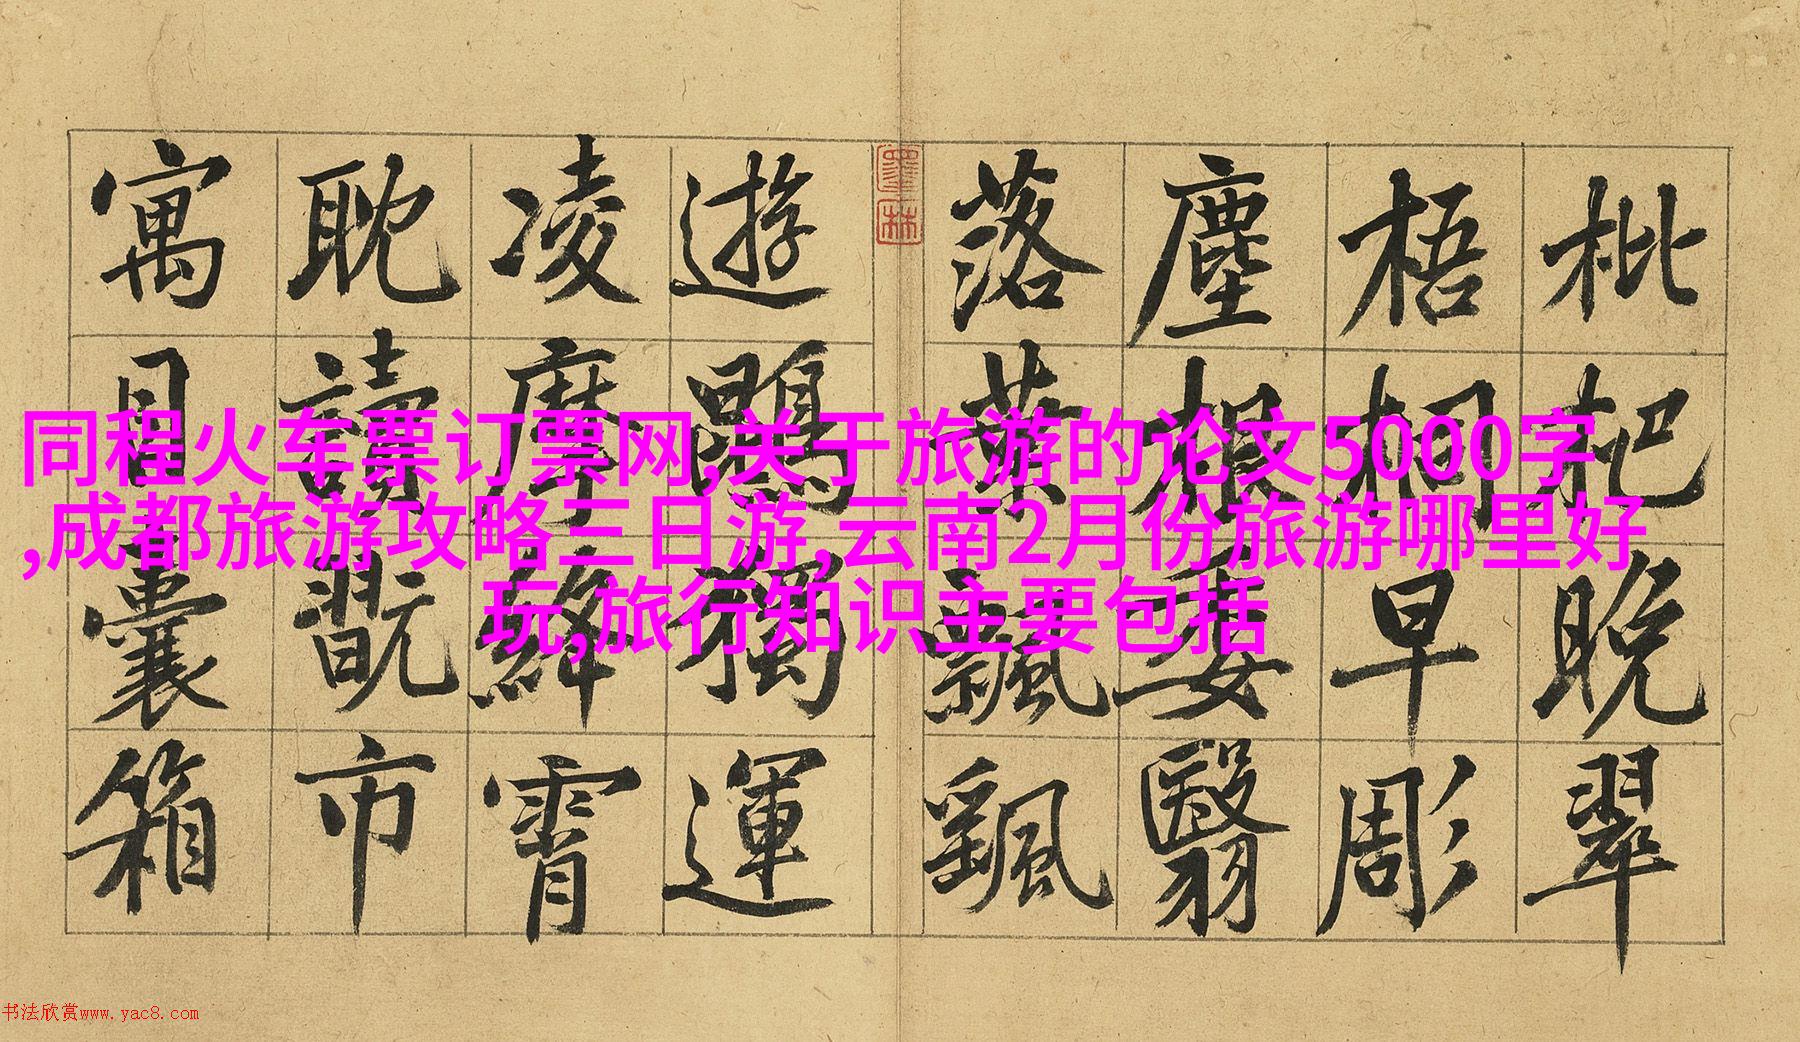 枇杷晚翠
梧桐早彫
塵根委翳
落葉飄颻
遊鵾獨運
凌摩絳霄
耽讀翫市
寓目囊箱
墨林
同程火车票订票网,关于旅游的论文5000字
,成都旅游攻略三日游,云南2月份旅游哪里好
玩,旅行知识主要包括
书法欣赏www.yac8.com